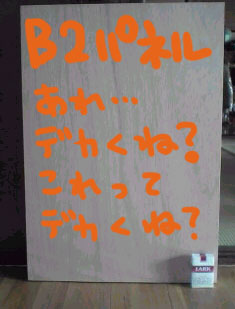 B2パネル
あれ…
デカくね?
これって
デカくね?
LARK